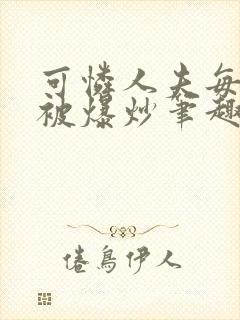 可憐人夫每
被爆炒筆趣
倦鳥伊人